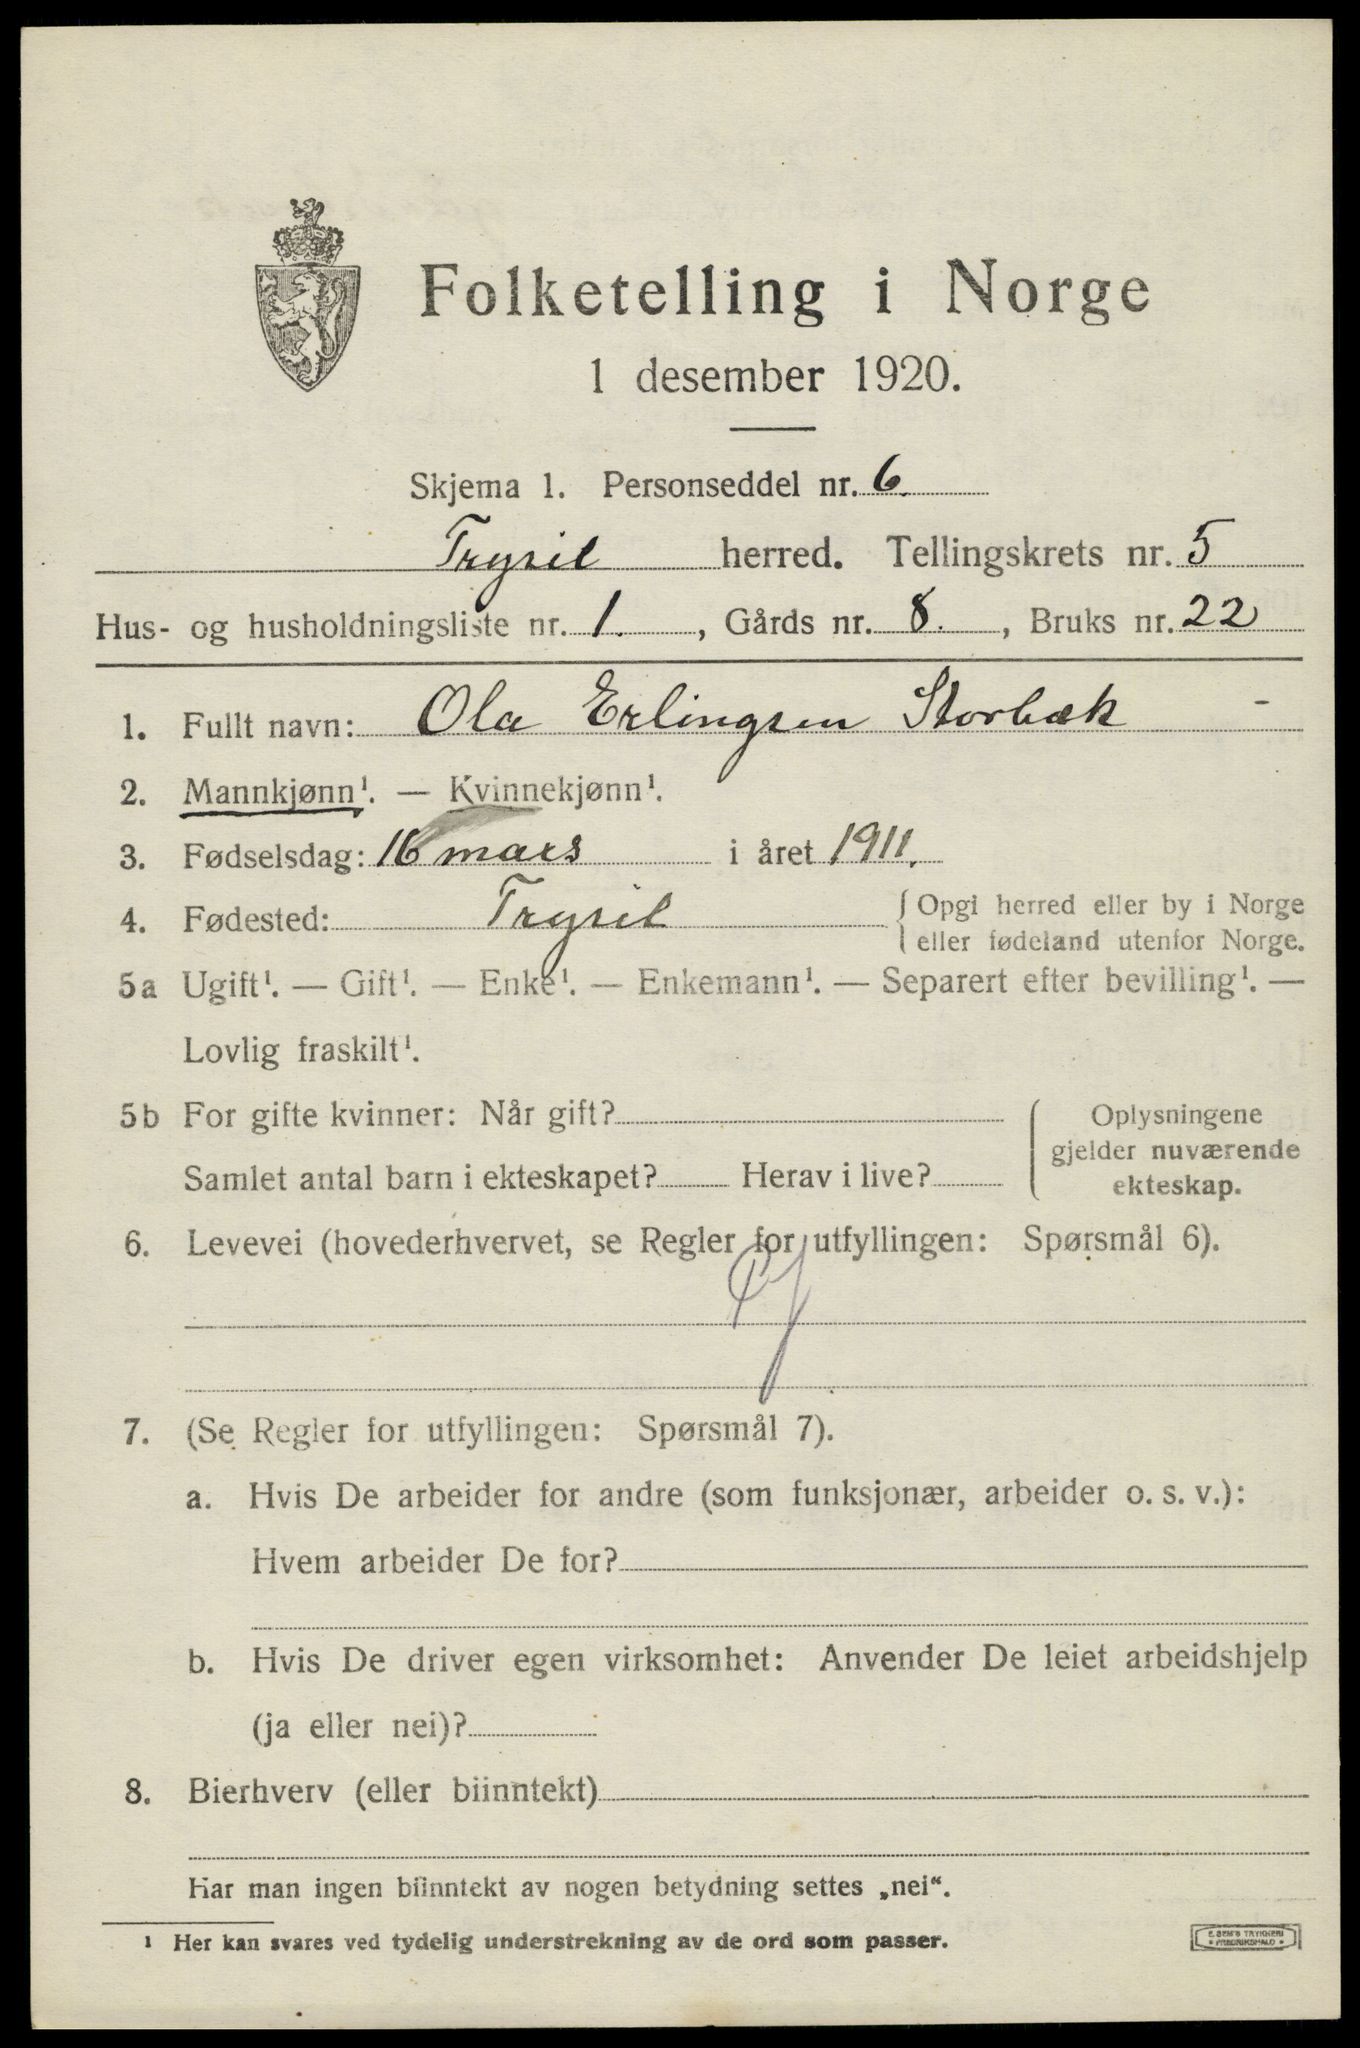 Folketelling i Norge
1 desember 1920.
Skjema 1. Personseddel nr. 6.
Trysil herred. Tellingskrets nr. 5
Hus- og husholdningsliste nr. 1. , Gårds nr. 8. , Bruks nr. 22
1. Fullt navn: Ola Erlingsen Storbæk -
2. Mannkjønn¹. — Kvinnekjønn¹.
3. Fødselsdag: 16 mars i året 1911.
4. Fødested: Trysil { Opgi herred eller by i Norge
eller fødeland utenfor Norge.
5a Ugift¹. — Gift¹. — Enke¹. — Enkemann¹. — Separert efter bevilling¹. —
Lovlig fraskilt¹.
5b For gifte kvinner: Når gift? Oplysningene
gjelder nuværende
Samlet antal barn i ekteskapet? Herav i live? ekteskap.
6. Levevei (hovederhvervet, se Regler for utfyllingen: Spørsmål 6).
7. (Se Regler for utfyllingen: Spørsmål 7).
a. Hvis De arbeider for andre (som funksjonær, arbeider o. s. v.):
Hvem arbeider De for?
b. Hvis De driver egen virksomhet: Anvender De leiet arbeidshjelp
(ja eller nei)?
8. Bierhverv (eller biinntekt)
Har man ingen biinntekt av nogen betydning settes „nei“.
¹ Her kan svares ved tydelig understrekning av de ord som passer.
E. SEM'S TRYKKERI
• FREDRIKSHALD •